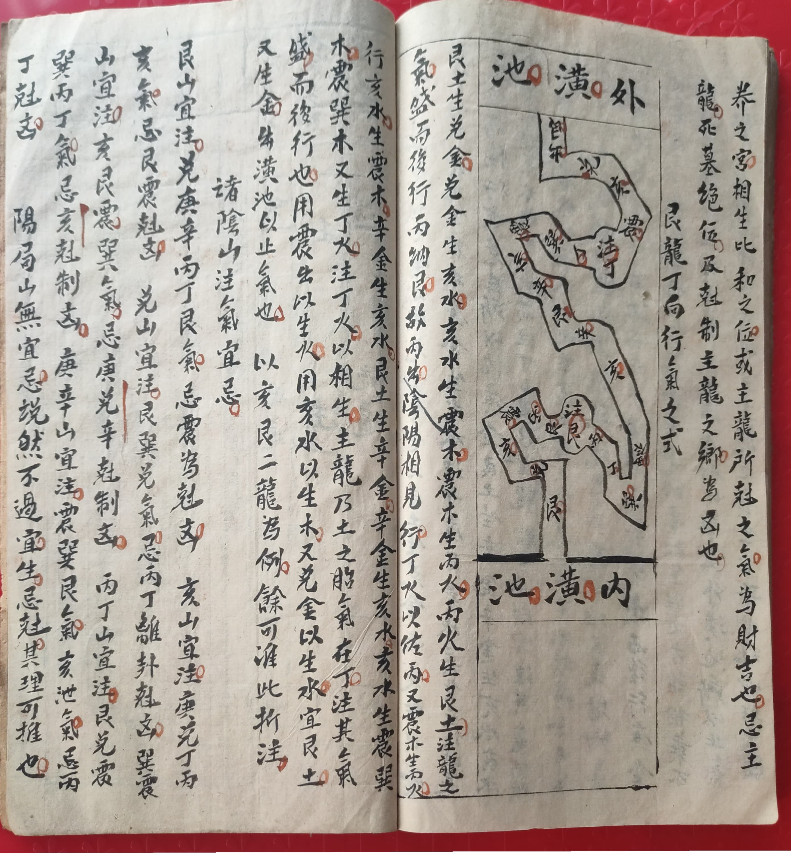 养之宮相生比和之位或主龍所尅之氣為財吉也忌主
龍死墓絕位及尅制主龍之鄉為凶也
艮龍丁向行氣之式
外潢池
注丁
亥
注艮
艮
内潢池
艮土生兑金兑金生亥水亥水生震木震木生丙火丙火生艮土注龍之
氣盛而後行丙納艮故丙出陰陽相見行丁火以佐丙又震木生丙火
行亥水生震木辛金生亥水艮土生辛金辛金生亥水亥水生震巽
木震巽木又生丁火注丁火以相生主龍乃土之胎氣在丁注其氣
盛而後行也用震出以生火用亥水以生木又兑金以生水宜艮土
又生金出潢池以止氣也 以亥艮二龍為例餘可准此折注
諸陰山注氣宜忌
艮山宜注兑庚辛丙丁艮氣忌震為尅凶 亥山宜注庚兑丁丙
亥氣忌艮震尅凶 兑山宜注艮巽兑氣忌丙丁離卦尅凶 巽震
山宜注亥艮震巽氣忌庚兑辛尅制凶 丙丁山宜注艮兑震
巽丙丁氣忌亥尅制凶 庚辛山宜注震巽艮氣亥泄氣忌丙
丁尅凶 陽局山無宜忌說然不過宜生忌尅其理可推也